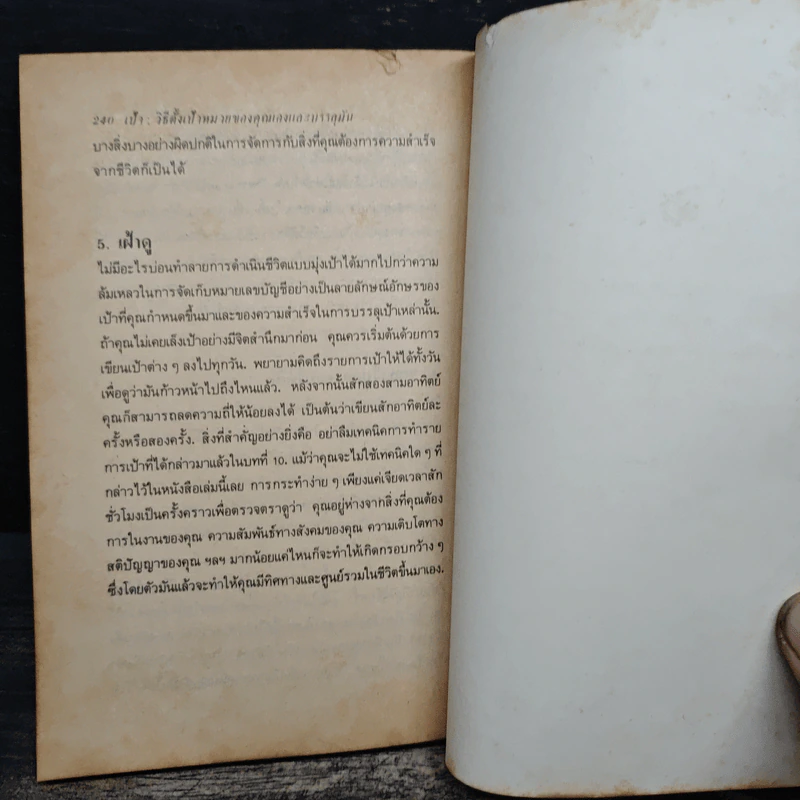 240 เป้า : วิธีตั้งเป้าหมายของคุณเองและบรรลุมัน
บางสิ่งบางอย่างผิดปกติในการจัดการกับสิ่งที่คุณต้องการความสำเร็จ
จากชีวิตก็เป็นได้
5. เฝ้าดู
ไม่มีอะไรบ่อนทำลายการดำเนินชีวิตแบบมุ่งเป้าได้มากไปกว่าความ
ล้มเหลวในการจัดเก็บหมายเลขบัญชีอย่างเป็นลายลักษณ์อักษรของ
เป้าที่คุณกำหนดขึ้นมาและของความสำเร็จในการบรรลุเป้าเหล่านั้น.
ถ้าคุณไม่เคยเล็งเป้าอย่างมีจิตสำนึกมาก่อน คุณควรเริ่มต้นด้วยการ
เขียนเป้าต่าง ๆ ลงไปทุกวัน. พยายามคิดถึงรายการเป้าให้ได้ทั้งวัน
เพื่อดูว่ามันก้าวหน้าไปถึงไหนแล้ว. หลังจากนั้นสักสองสามอาทิตย์
คุณก็สามารถลดความถี่ให้น้อยลงได้ เป็นต้นว่าเขียนสักอาทิตย์ละ
ครั้งหรือสองครั้ง. สิ่งที่สำคัญอย่างยิ่งคือ อย่าลืมเทคนิคการทำราย
การเป้าที่ได้กล่าวมาแล้วในบทที่ 10. แม้ว่าคุณจะไม่ใช้เทคนิคใด ๆ ที่
กล่าวไว้ในหนังสือเล่มนี้เลย การกระทำง่าย ๆ เพียงแค่เจียดเวลาสัก
ชั่วโมงเป็นครั้งคราวเพื่อตรวจตราดูว่า คุณอยู่ห่างจากสิ่งที่คุณต้อง
การในงานของคุณ ความสัมพันธ์ทางสังคมของคุณ ความเติบโตทาง
สติปัญญาของคุณ ฯลฯ มากน้อยแค่ไหนก็จะทำให้เกิดกรอบกว้าง ๆ
ซึ่งโดยตัวมันแล้วจะทำให้คุณมีทิศทางและศูนย์รวมในชีวิตขึ้นมาเอง.